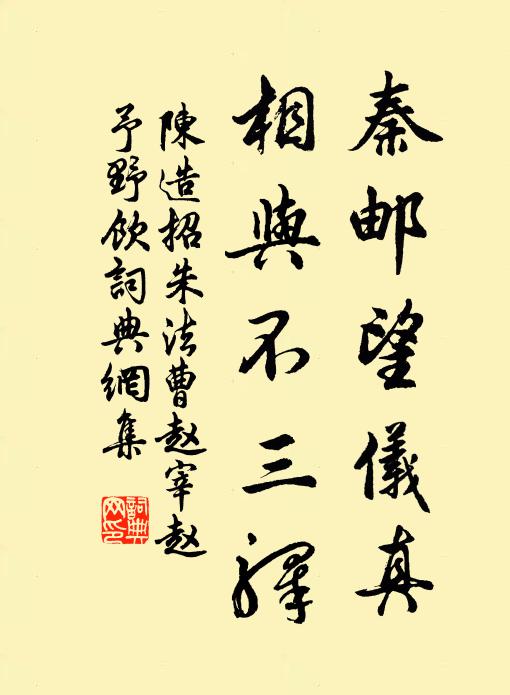 秦邮望儀真
相與不三驛
陳造招朱法曹赵宰赵
予野飲詞典網集
詞典
网印